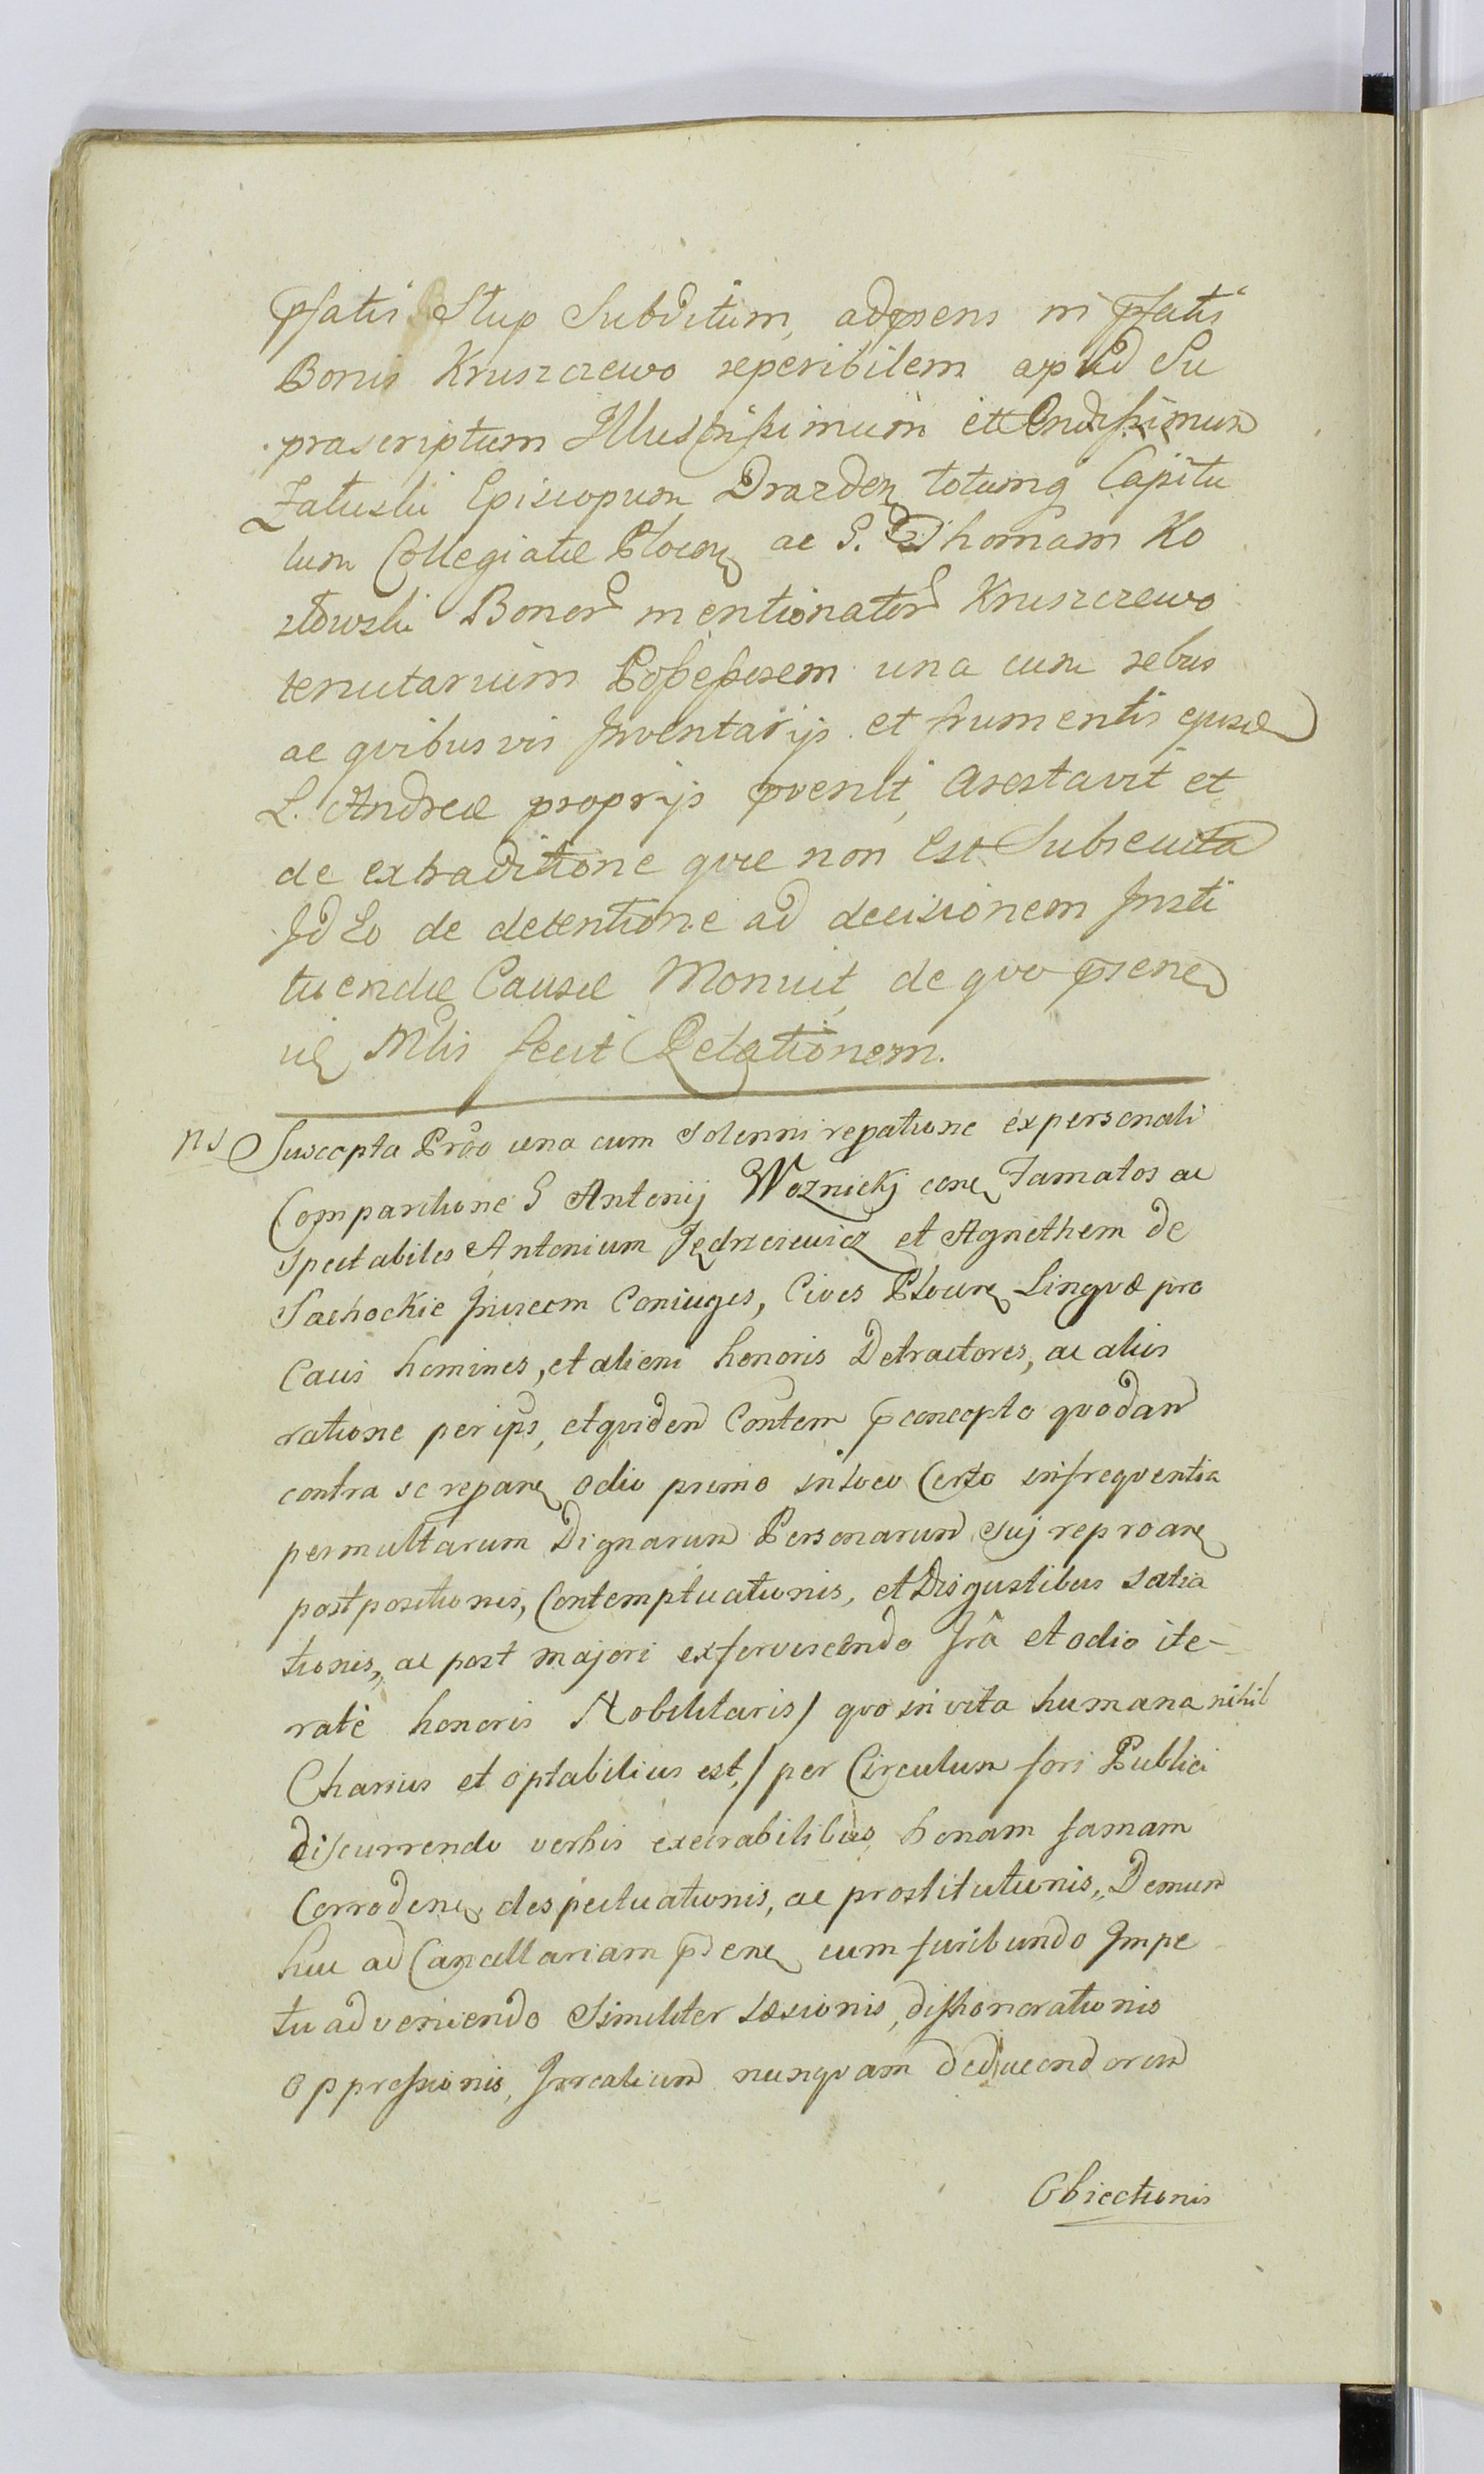 pfatis Stup Subditum, adpsens in pfatis
Bonis Kruszczewo reperibilem apud Su
prascriptum Illustrissimum et Rndissimum
Załuski Episcopum Drazden totumq Capitu
lum Collegiatæ Plocen ac G. Thomam Ko
złowski Bonor mentionator Kruszczewo
tenutarium Possessorem una cum rebus
ac qvibusvis Inventarijs et frumentis ejusd
L. Andreæ proprijs pvenit, arestavit et
de extraditione qvæ non est Subsecuta
Id Eo de detentione ad decisionem Insti
tuendæ Causæ Monuit, de qvo psene
Mlis fecit Relationem.
ns Suscepta Prõo una cum solenni repatione ex personali
Comparitione G Antonij Woznickj cone Famatos ac
Spectabiles Antonium Jędrzeiewicz et Agnethem de
Sachockie Invicem Coniuges, Cives Plocen Lingvæ pro
Caces homines, et alieni honoris Detractores, ac aliis
ratione per ips, et qvidem Contem pconcepto qvodam
contra se repane odio primo in loco Certo in freqventia
permultarum Dignarum Personarum suj reproane
postpositionis, Contemptuationis, et Disgustibus satia
tionis, ac post majori exfervescendo Irâ et odio ite-
ratè honoris Nobilitaris / qvo in vita humana nihil
Charius et optabilius est, / per Circulum fori Publici
discurrendo verbis execrabilibus bonam famam
Corrodene despectuationis, ac prostitutionis, Demum
huc ad Cancellariam psene cum furibundo Impe
tu adveniendo Similiter Læsionis, dishonorationis
oppressionis, Irrealium nunqvam deducendorum
Obiectionis